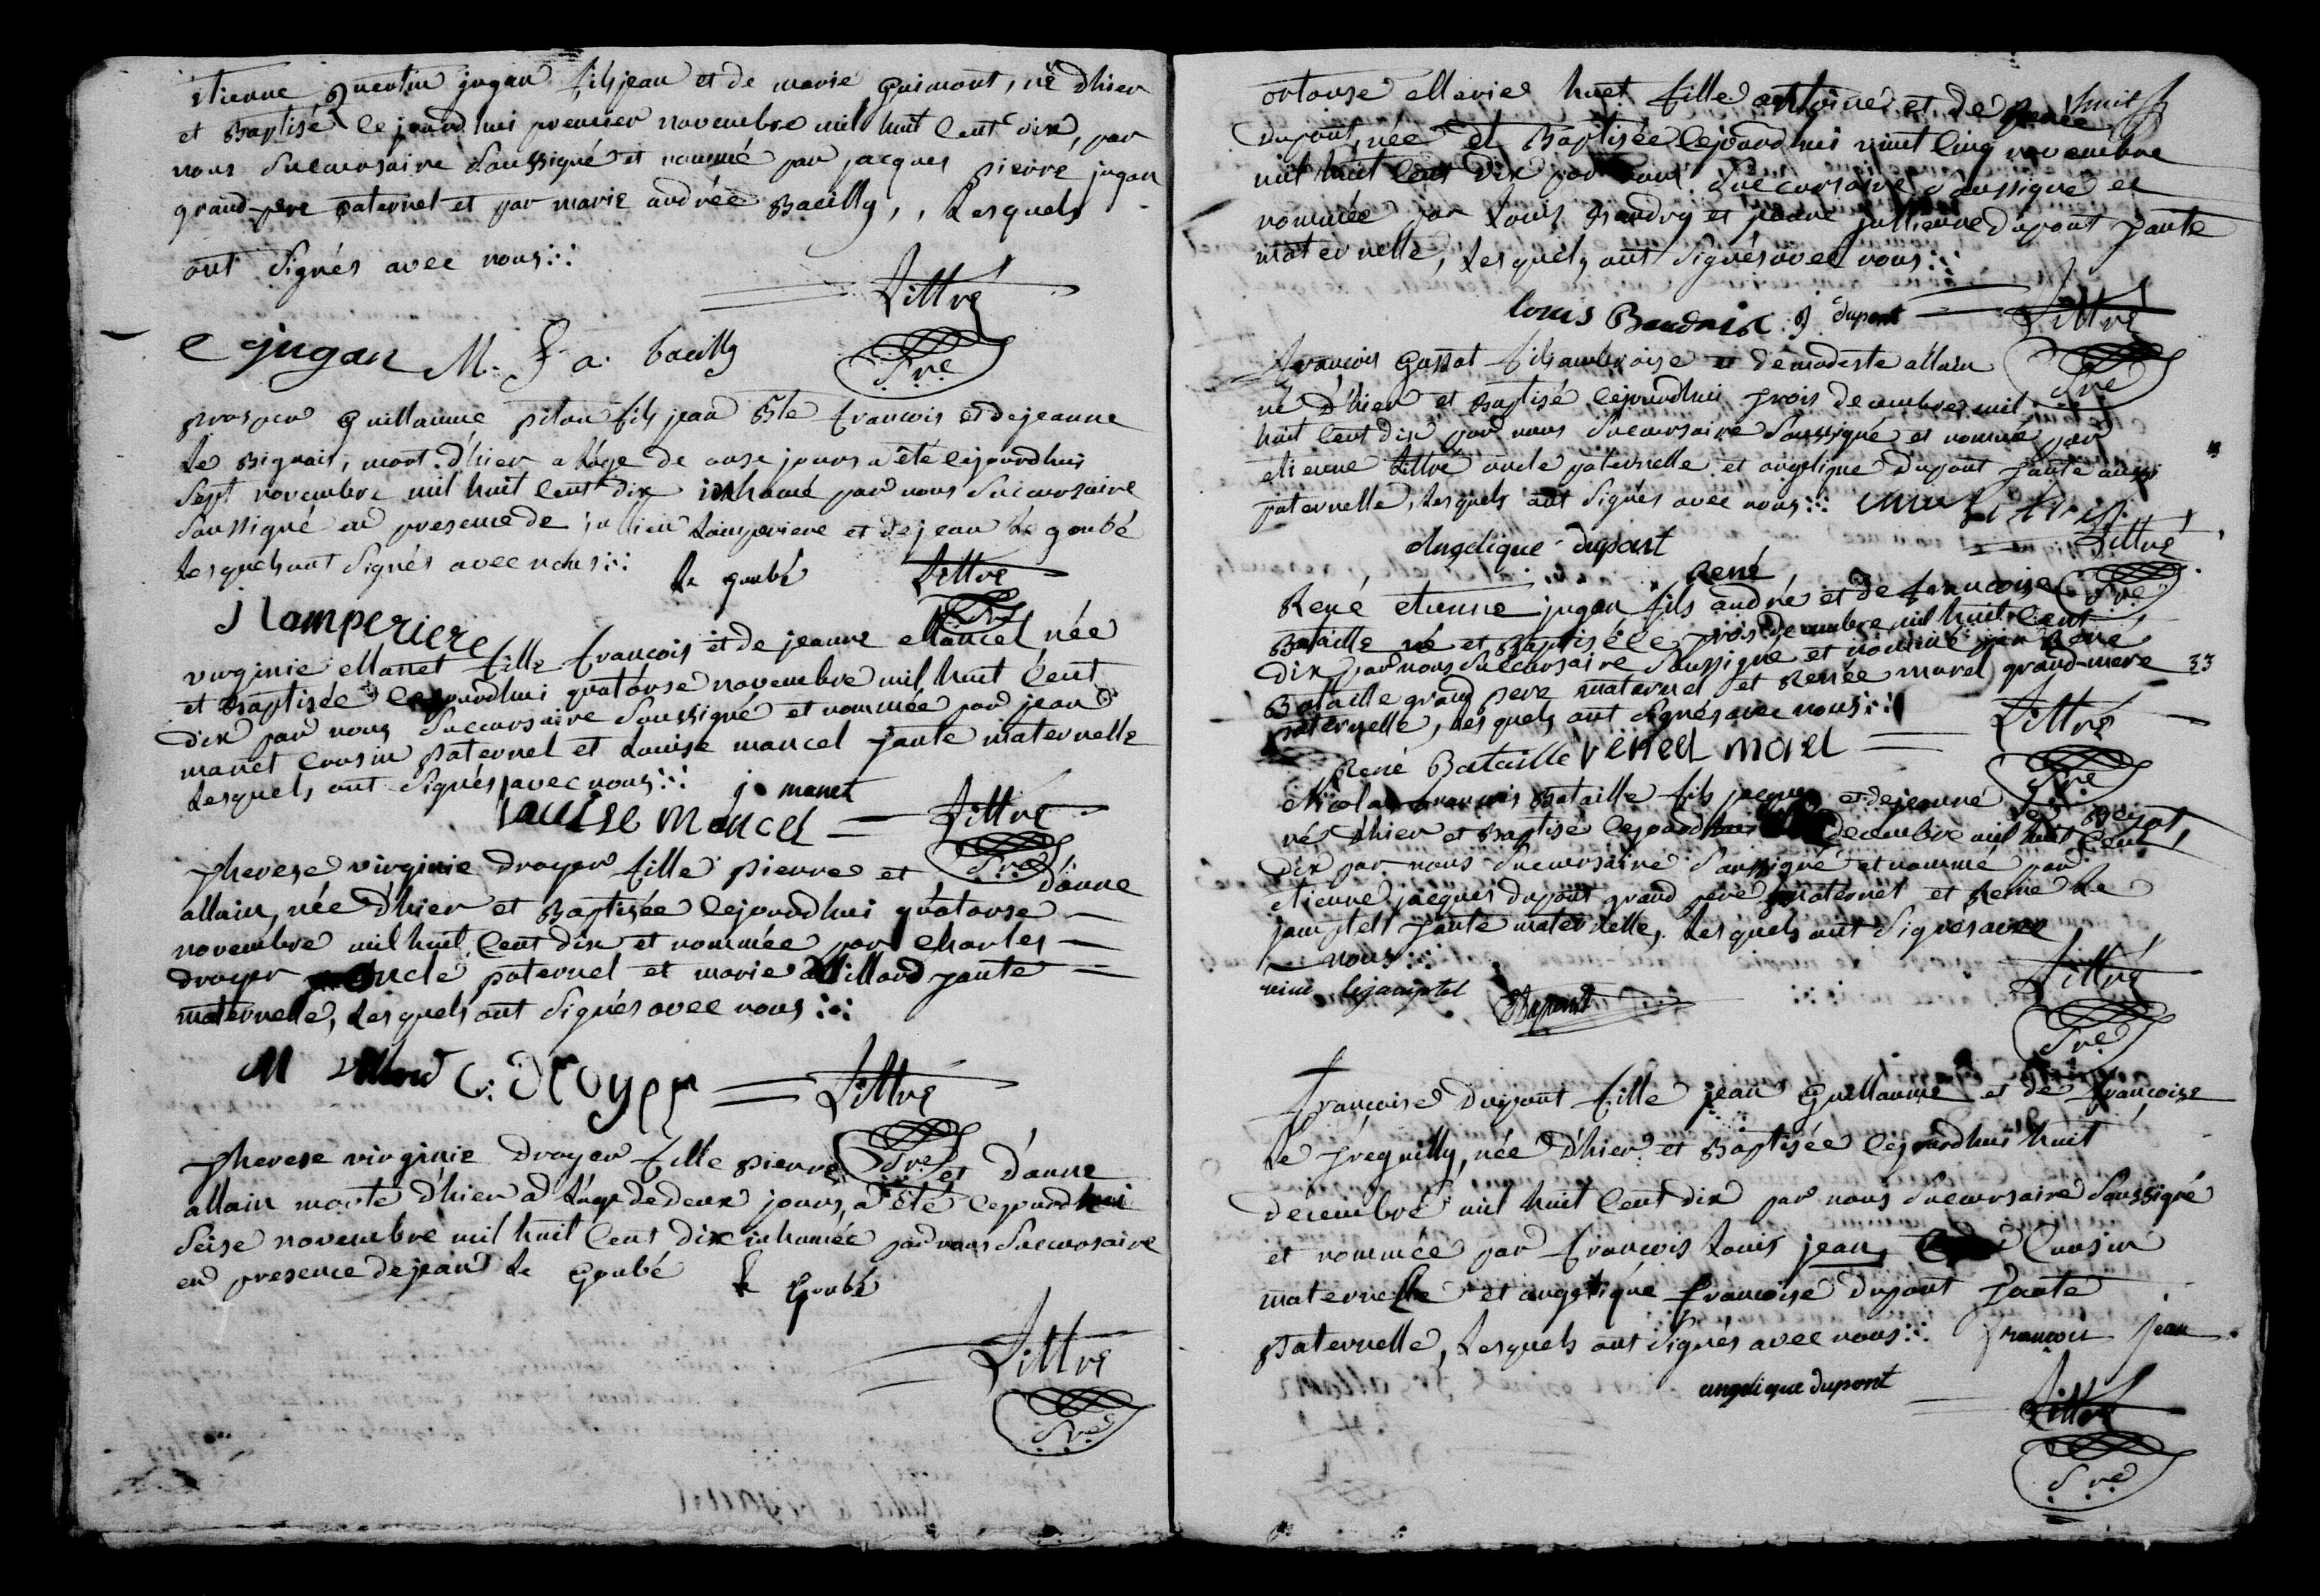 etienne quentin jugan fils jean et de marie guimont, né d'hier
et Baptisé cejourd'hui premier novembre mil huit cent dix, par
nous succursaire soussigné et nommé par jacques pierre jugan
grand-pere paternel et par marie andrée Bacilly, , Lesquels
ont signés avec nous
Littré
e jugan M. f. a. bacilly
sre
prosper guillaume piton fils jean Bte francois et de jeanne
Le Bignait, mort d'hier a l'age de onse jours a été cejourdhui
sept novembre mil huit cent dix inhumé par nous succursaire
soussigné en presence de jullien Lamperiere et de jean Le goubé
Lesquels ont signés avec nous
le goubé Littré
j lamperiere
virginie Manet fille francois et de jeanne Mancel née
et Baptisée cejourdhui quatorse novembre mil huit cent
dix par nous succursaire soussigné et nommée par jean
manet cousin paternel et Louise mancel tante maternelle
Lesquels ont signés avec nous j manet
Louise mancel Littré
sre
therese virginie drayer fille pierre et d'anne
allain, née d'hier et Baptisée cejourdhui quatorse
novembre mil huit cent dix et nommée par charles
drayer oncle paternel et marie Millard tante
maternelle, Lesquels ont signés avec nous
M c. drayer Littré
sre
therese virginie drayer fille pierre et d'anne
allain morte d'hier a L'age de deux jours, a été cejourdhui
seise novembre mil huit cent dix inhumée par nous succursaire
en presence de jean Le Goubé Le Goubé
Littré
sre
ortouse Marie huet fille antoine et de Renée
dupont, née et Baptisée cejourdhui vint cinq novembre
mil huit cent dix par nous succursaire soussigné et
nommée par Louis Baudry et jeanne jullienne dupont tante
maternelle, Lesquels ont signés avec nous
louis Baudri j dupont Littré
sre
francois Gassot fils ambroise et de modeste allain
né d'hier et Baptisé cejourdhui trois decembre mil
huit cent dix par nous succursaire soussigné et nommé par
etienne Littré oncle paternelle et angelique dupont tante aussi
paternelle, Lesquels ont signés avec nous
Angelique dupont Littré
sre
René
René etienne jugan fils andré et de francoise
Bataille né et Baptisé le trois decembre mil huit cent
dix par nous succursaire soussigné et nommé par Rene
Bataille grand pere maternel et Renée morel grand-mere 33
paternelle, Lesquels ont signés avec nous
René Bataille reneel morel Littré
sre
Nicolas francois Bataille fils jacques et de jeanne
né d'hier et Baptisé cejourdhui decembre mil huit cent
dix par nous succursaire soussigné et nommé par
etienne jacques dupont grand pere maternel et Reine Le
jamptel tante maternelle, Lesquels ont signés avec
nous
reine lejamptel Dupont Littré
sre
francoise dupont fille jean Guillaume et de francoise
Le treguilly, née d'hier et Baptisée cejourdhui huit
decembre mil huit cent dix par nous succursaire soussigné
et nommée par francois Louis jean, cousin
maternelle et angelique francoise dupont tante
paternelle, Lesquels ont signés avec nous francois jean
angelique dupont
Littré
sre